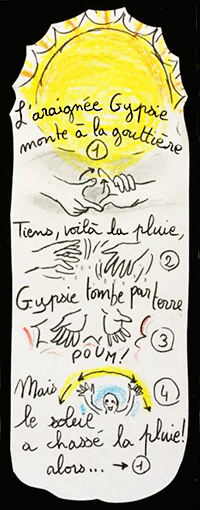 L'araignée Gypsie
monte à la gouttière
1
Tiens, voilà la pluie,
2
Gypsie tombe par terre
3
POUM!
Mais
4
le soleil
a chassé la pluie!
alors... → 1